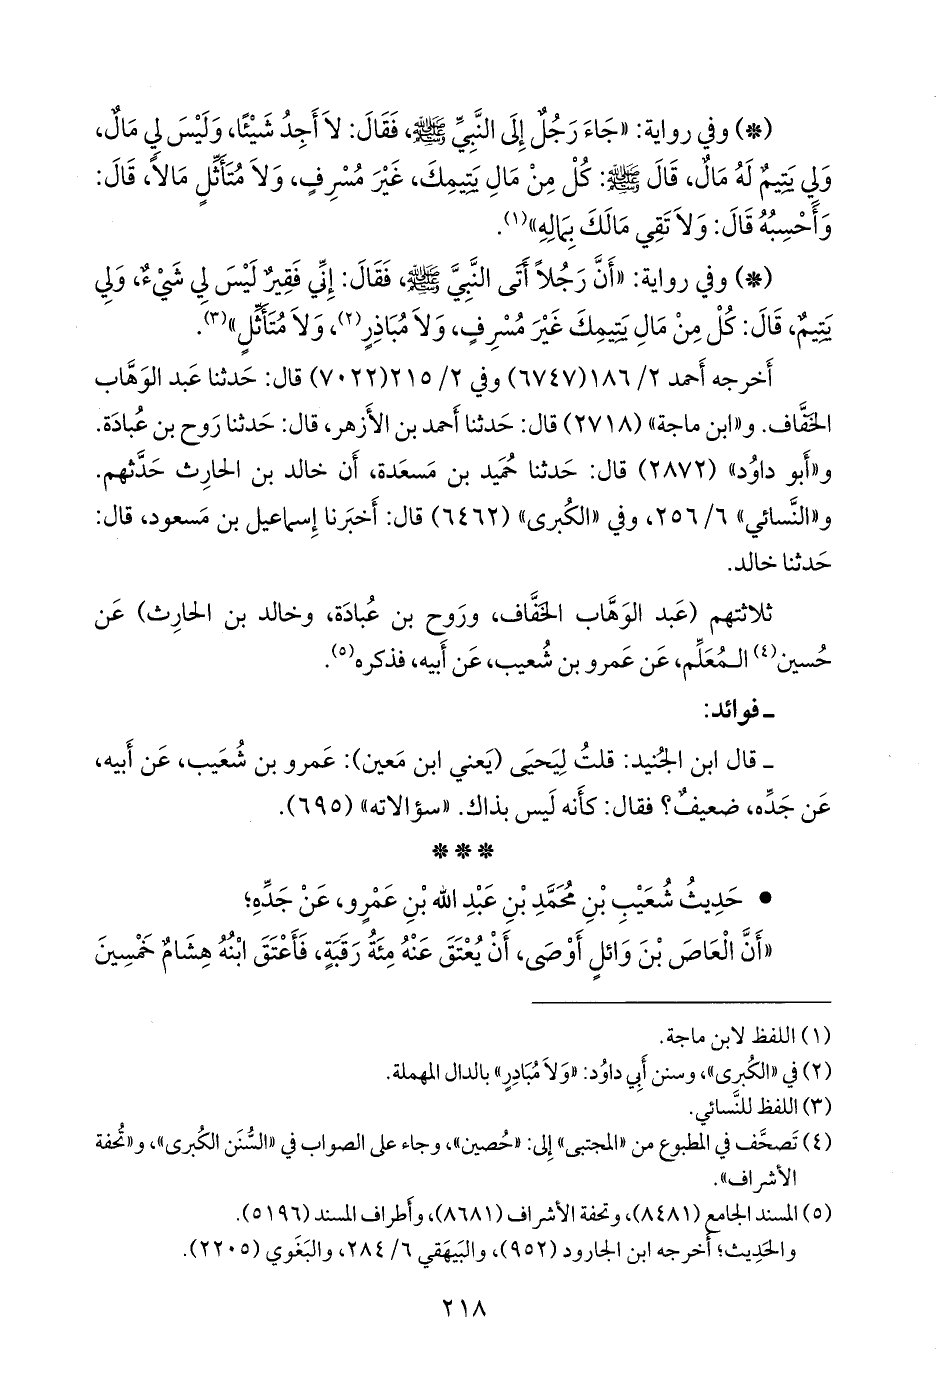 (*) وفي رواية: «جَاءَ رَجُلٌ إِلَى النَّبِيِّ ﷺ، فَقَالَ: لاَ أَجِدُ شَيْئًا، وَلَيْسَ لِي مَالٌ،
وَلِي يَتِيمٌ لَهُ مَالٌ، قَالَ ﷺ: كُلْ مِنْ مَالِ يَتِيمِكَ، غَيْرَ مُسْرِفٍ، وَلاَ مُتَأَثِّلٍ مَالاً، قَالَ:
وَأَحْسِبُهُ قَالَ: وَلاَ تَقِي مَالَكَ بِمَالِهِ»(١).
(*) وفي رواية: «أَنَّ رَجُلاً أَتَى النَّبِيَّ ﷺ، فَقَالَ: إِنِّي فَقِيرٌ لَيْسَ لِي شَيْءٌ، وَلِي
يَتِيمٌ، قَالَ: كُلْ مِنْ مَالِ يَتِيمِكَ غَيْرَ مُسْرِفٍ، وَلاَ مُبَاذِرٍ(٢)، وَلاَ مُتَأَثِّلٍ»(٣).
أَخرجه أَحمد ٢/ ١٨٦(٦٧٤٧) وفي ٢/ ٢١٥(٧٠٢٢) قال: حَدثنا عَبد الوَهَّاب
الخَفَّاف. و«ابن ماجة» (٢٧١٨) قال: حَدثنا أَحمد بن الأَزهر، قال: حَدثنا رَوح بن عُبادَة.
و«أَبو داوُد» (٢٨٧٢) قال: حَدثنا حُميد بن مَسعَدة، أَن خالد بن الحارِث حَدَّثهم.
و«النَّسائي» ٦/ ٢٥٦، وفي «الكُبرى» (٦٤٦٢) قال: أَخبَرنا إِسماعيل بن مَسعود، قال:
حَدثنا خالد.
ثلاثتهم (عَبد الوَهَّاب الخَفَّاف، ورَوح بن عُبادَة، وخالد بن الحارِث) عَن
حُسين(٤) الـمُعَلِّم، عَن عَمرو بن شُعيب، عَن أَبيه، فذكره(٥).
ـ فوائد:
ـ قال ابن الجُنيد: قلتُ لِيَحيَى (يَعني ابن مَعين): عَمرو بن شُعَيب، عَن أَبيه،
عَن جَدِّه، ضعيفٌ؟ فقال: كأَنه لَيس بذاك. «سؤالاته» (٦٩٥).
* * *
• حَدِيثُ شُعَيْبِ بْنِ مُحَمَّدِ بْنِ عَبْدِ الله بْنِ عَمْرٍو، عَنْ جَدِّهِ؛
«أَنَّ الْعَاصَ بْنَ وَائِلٍ أَوْصَى، أَنْ يُعْتَقَ عَنْهُ مِئَةُ رَقَبَةٍ، فَأَعْتَقَ ابْنُهُ هِشَامٌ خَمْسِينَ
(١) اللفظ لابن ماجة.
(٢) في «الكُبرى»، وسنن أَبي داوُد: «وَلاَ مُبَادِرٍ» بالدال المهملة.
(٣) اللفظ للنَّسائي.
(٤) تَصحَّف في المطبوع من «المجتبى» إِلى: «حُصين»، وجاء على الصواب في «السُّنَن الكُبرى»، و«تُحفة
الأشراف».
(٥) المسند الجامع (٨٤٨١)، وتحفة الأشراف (٨٦٨١)، وأَطراف المسند (٥١٩٦).
والحَدِيث؛ أَخرجه ابن الجارود (٩٥٢)، والبَيهَقي ٦/ ٢٨٤، والبَغَوي (٢٢٠٥).
٢١٨